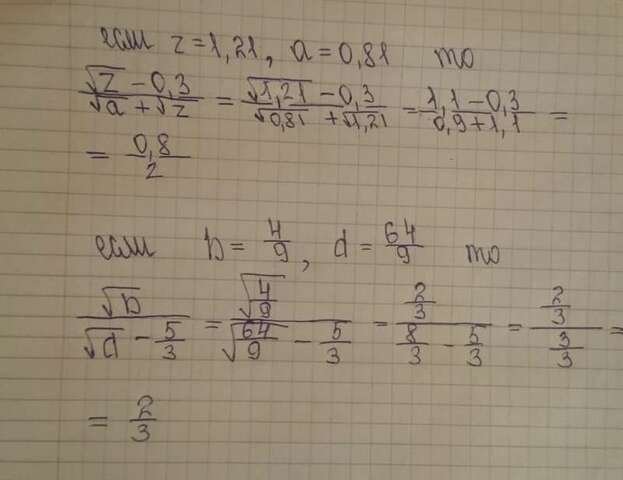 если z = 1,21, a = 0,81 то
(√z − 0,3)/(√a + √z) = (√1,21 − 0,3)/(√0,81 + √1,21) = (1,1 − 0,3)/(0,9 + 1,1) =
= 0,8/2
если b = 4/9, d = 64/9 то
√b/(√d − 5/3) = √(4/9)/(√(64/9) − 5/3) = (2/3)/(8/3 − 5/3) = (2/3)/(3/3) =
= 2/3